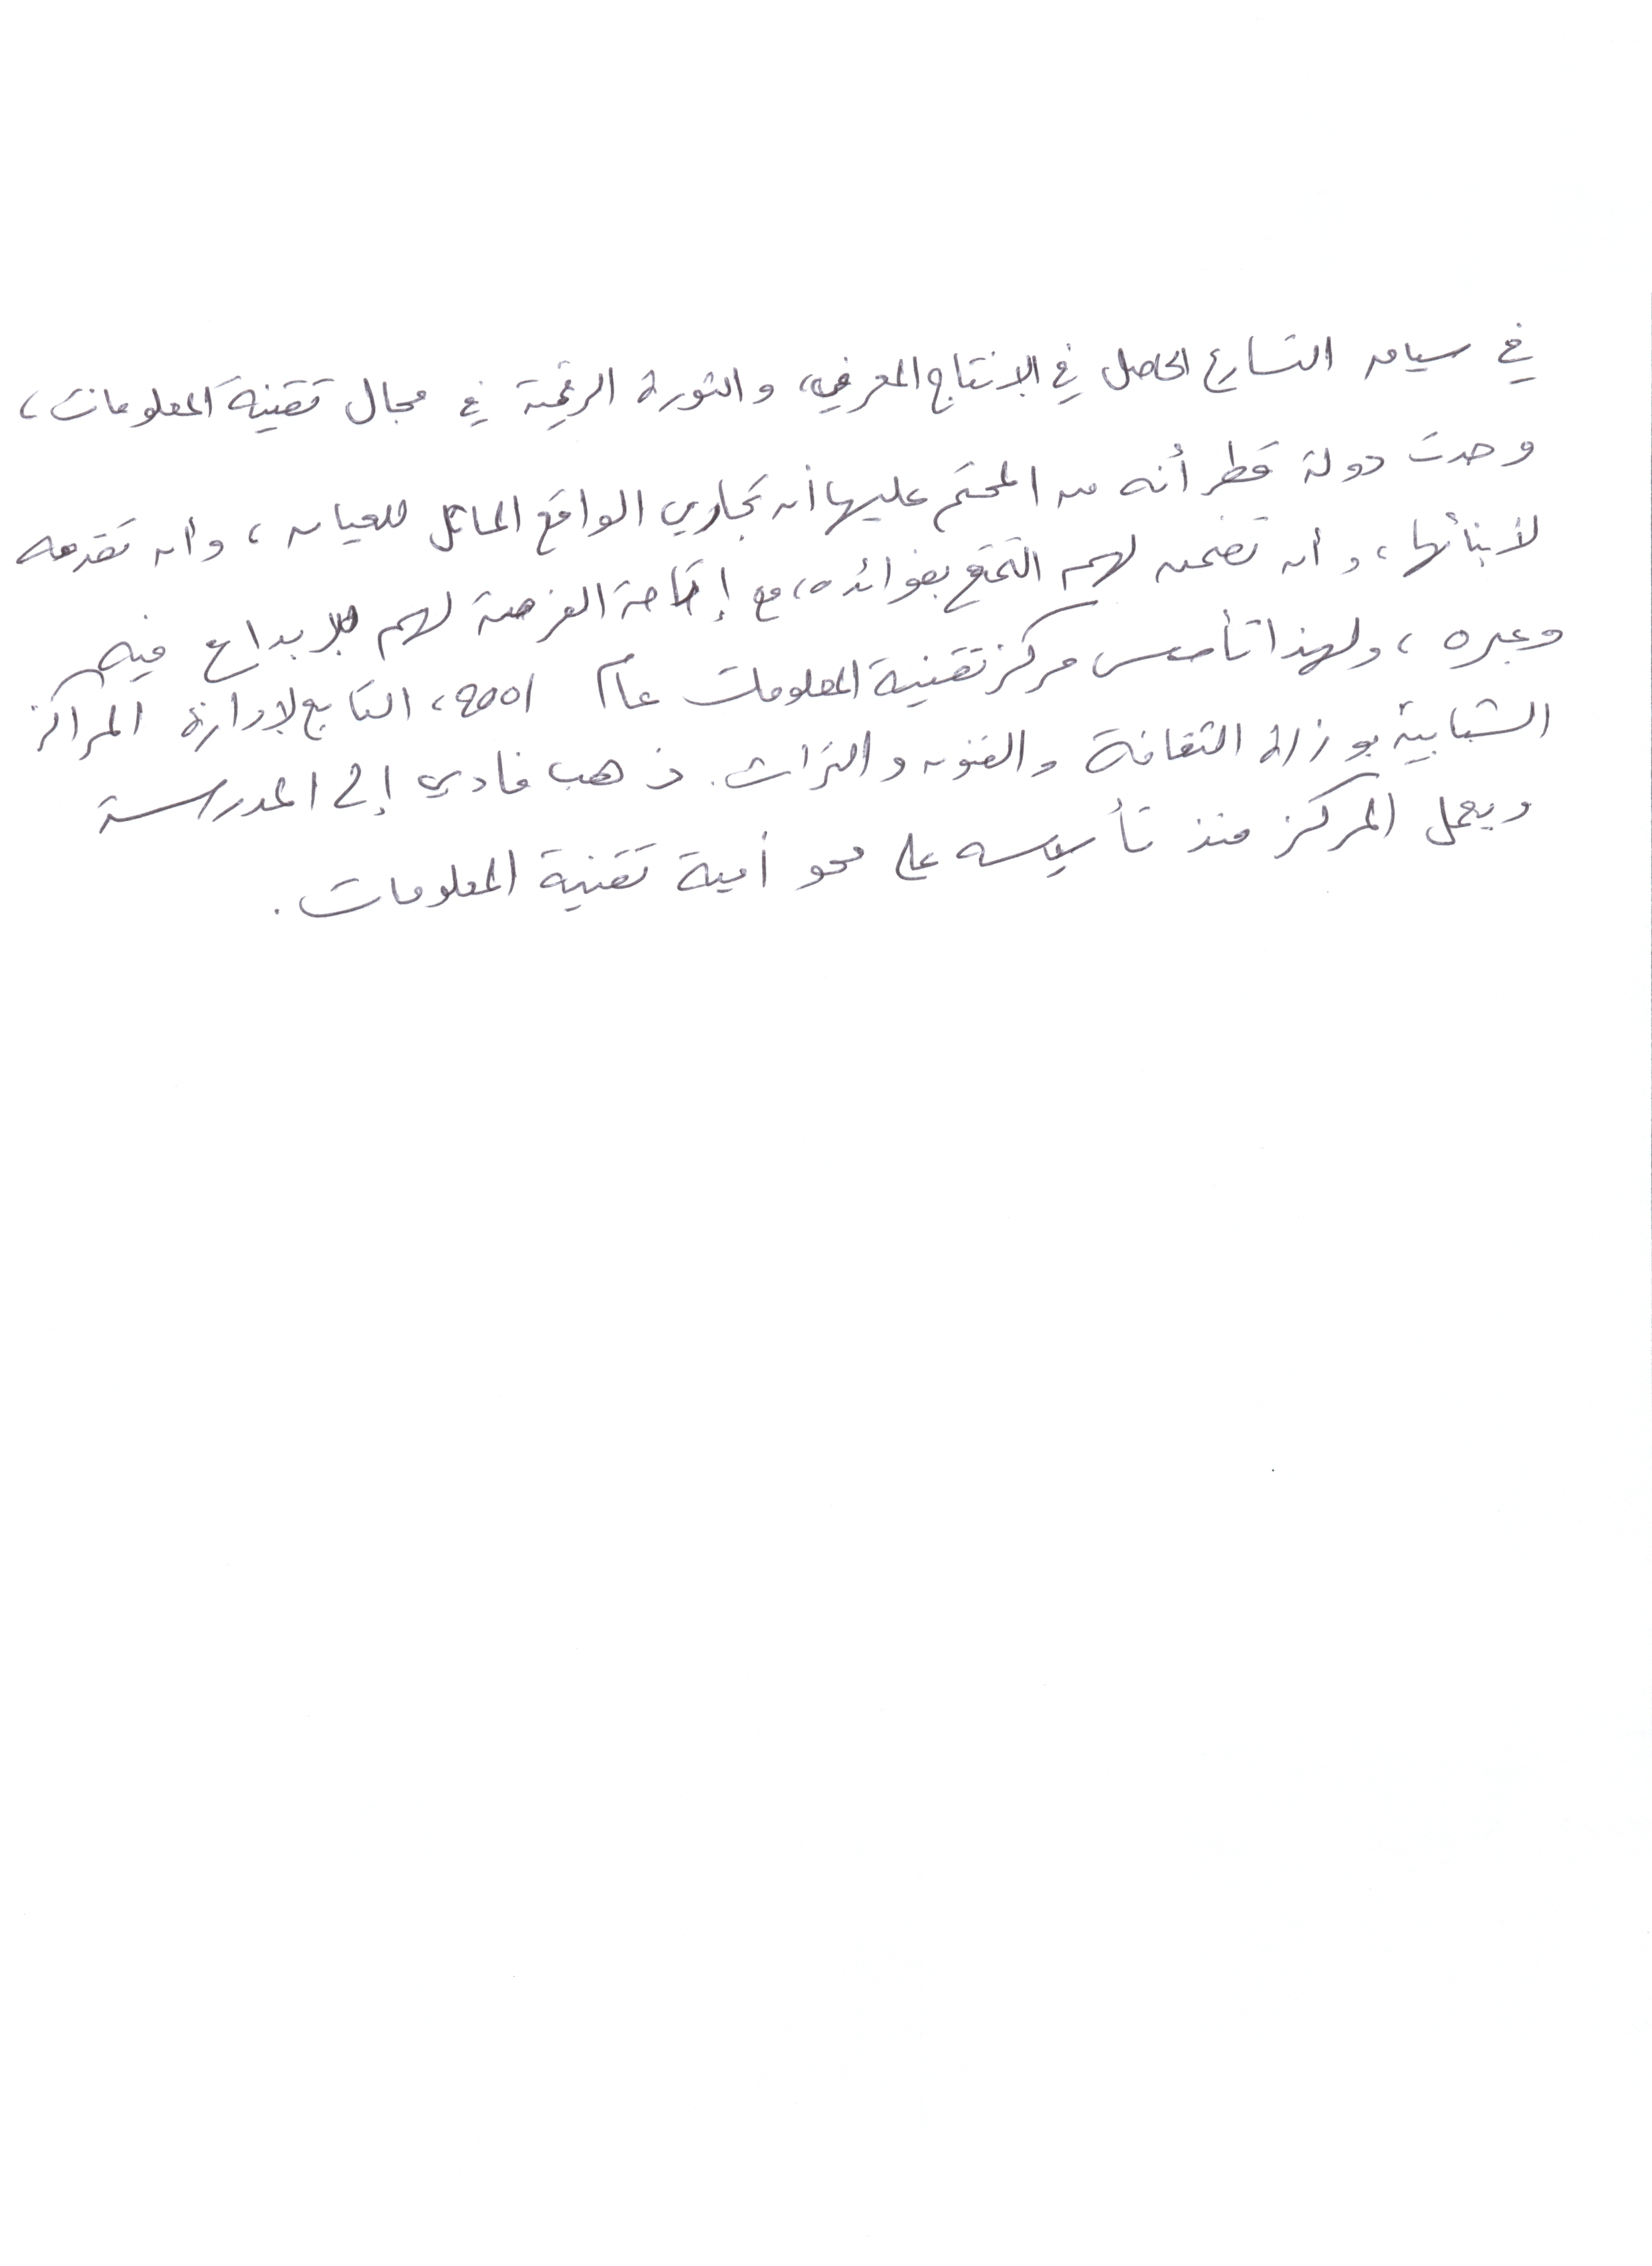 في سياق التسارع الحاصل في الإنتاج المعرفي، والثورة الرقمية في مجال تقنية المعلومات،
وجدت دولة قطر أنه من المحتم عليها أن تجاري الواقع الماثل للعيان، وأن تقدمه
لأبنائها، وأن تضمن لهم التمتع بفوائده، مع إتاحة الفرصة لهم للإبداع فيه
وعبره، ولهذا تأسس مركز تقنية المعلومات عام 2001، التابع لإدارة المراكز
الشبابية بوزارة الثقافة والفنون والتراث. ذهب فادي إلى المدرسة
ويعمل المركز منذ تأسيسه على محو أمية تقنية المعلومات.